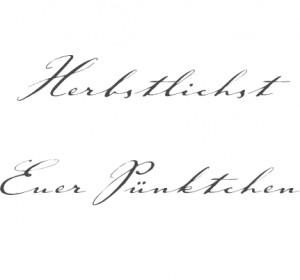 Herbstlichst
Euer Pünktchen